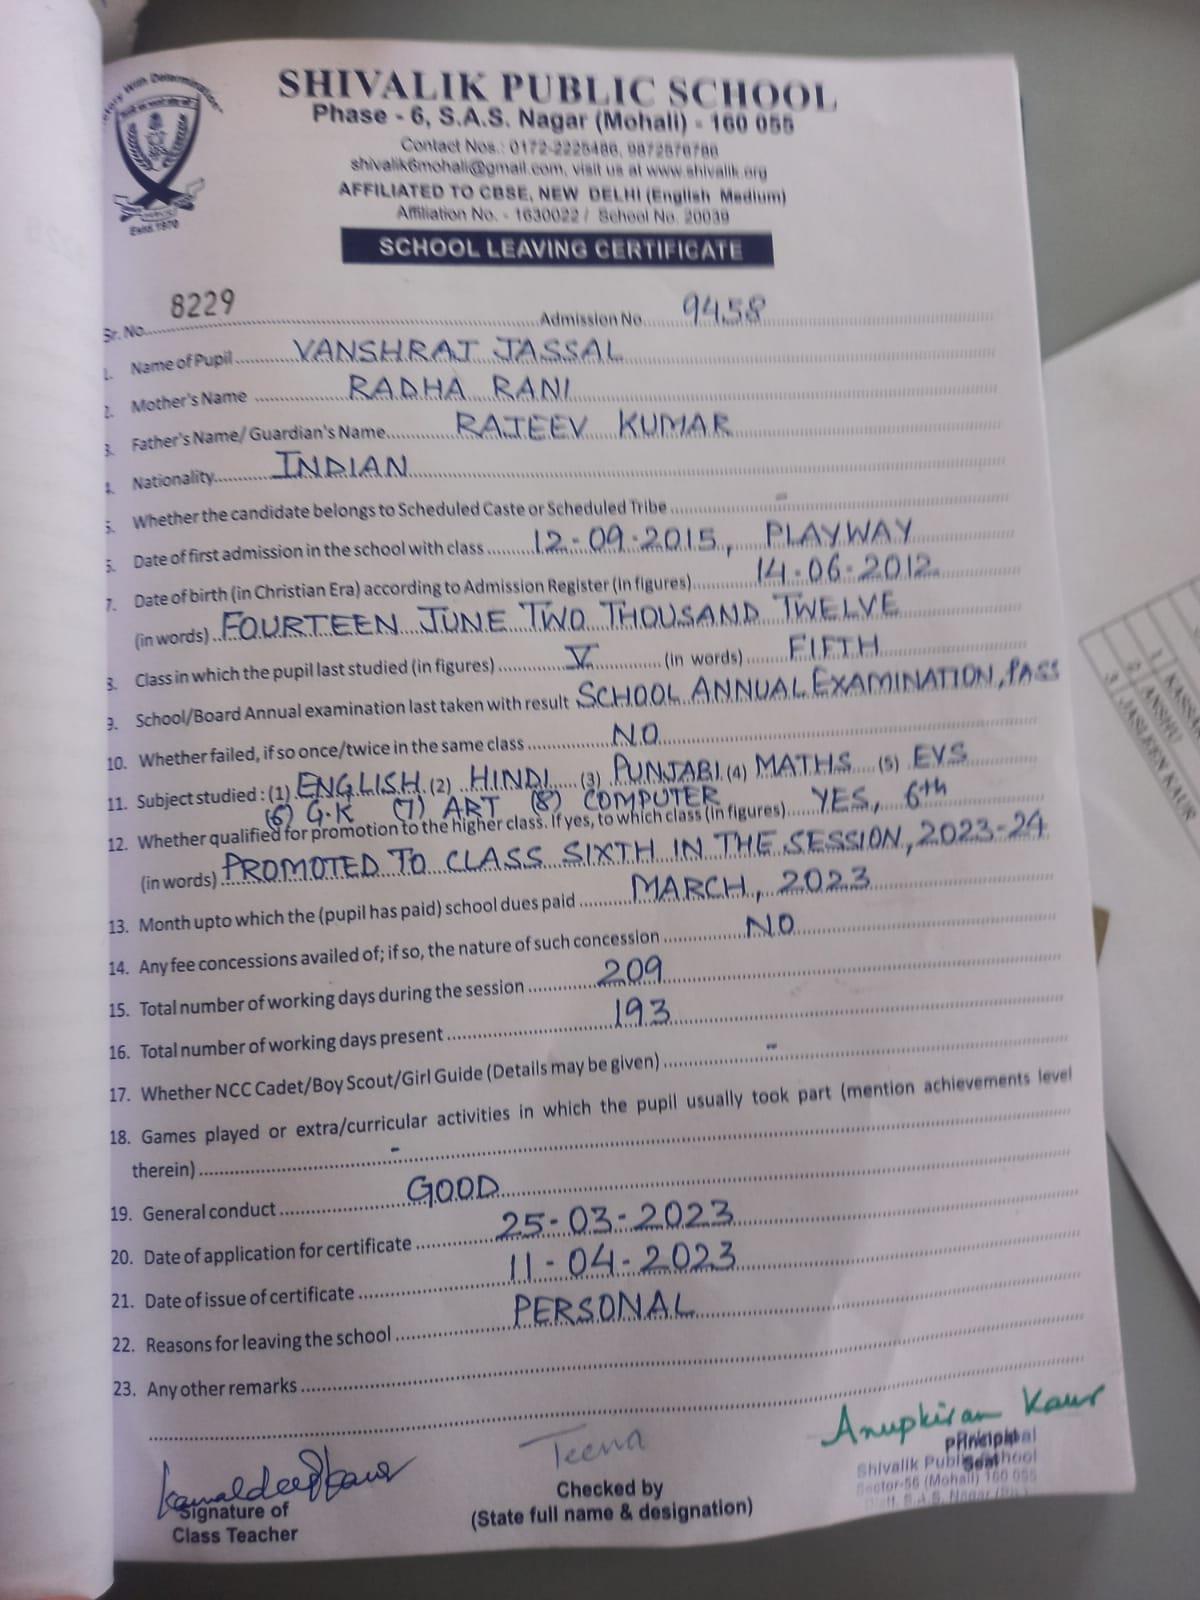 SHIVALIK PUBLIC SCHOOL
Phase - 6, S.A.S. Nagar (Mohali) - 160 055
Contact Nos.: 0172-2225486, 9872876786
shivalik6mohali@gmail.com, visit us at www.shivalik.org
AFFILIATED TO CBSE, NEW DELHI (English Medium)
Affiliation No. - 1630022 / School No. 20039
With Determination
Estd.1970
SCHOOL LEAVING CERTIFICATE
Sr. No. 8229 Admission No. 9458
1. Name of Pupil VANSHRAJ JASSAL
2. Mother's Name RADHA RANI
3. Father's Name/ Guardian's Name RAJEEV KUMAR
4. Nationality INDIAN
5. Whether the candidate belongs to Scheduled Caste or Scheduled Tribe -
6. Date of first admission in the school with class 12-09-2015, PLAYWAY
7. Date of birth (in Christian Era) according to Admission Register (in figures) 14-06-2012
(in words) FOURTEEN JUNE TWO THOUSAND TWELVE
8. Class in which the pupil last studied (in figures) V (in words) FIFTH
9. School/Board Annual examination last taken with result SCHOOL ANNUAL EXAMINATION, PASS
10. Whether failed, if so once/twice in the same class NO
11. Subject studied : (1) ENGLISH (2) HINDI (3) PUNJABI (4) MATHS (5) EVS
(6) G.K (7) ART (8) COMPUTER
12. Whether qualified for promotion to the higher class. If yes, to which class (in figures) YES, 6th
(in words) PROMOTED TO CLASS SIXTH IN THE SESSION, 2023-24
13. Month upto which the (pupil has paid) school dues paid MARCH, 2023
14. Any fee concessions availed of; if so, the nature of such concession NO
15. Total number of working days during the session 209
16. Total number of working days present 193
17. Whether NCC Cadet/Boy Scout/Girl Guide (Details may be given) -
18. Games played or extra/curricular activities in which the pupil usually took part (mention achievements level
therein) -
19. General conduct GOOD
20. Date of application for certificate 25-03-2023
21. Date of issue of certificate 11-04-2023
22. Reasons for leaving the school PERSONAL
23. Any other remarks
Kamaldeep Kaur
Signature of
Class Teacher
Teena
Checked by
(State full name & designation)
Anupkiran Kaur
Principal
Seal
Principal
Shivalik Public School
Sector-56 (Mohali) 160 055
1
2 ANSHU
3 JASLEEN KAUR